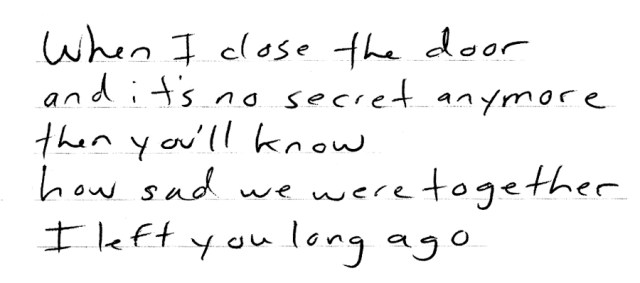 When I close the door
and it's no secret anymore
then you'll know
how sad we were together
I left you long ago